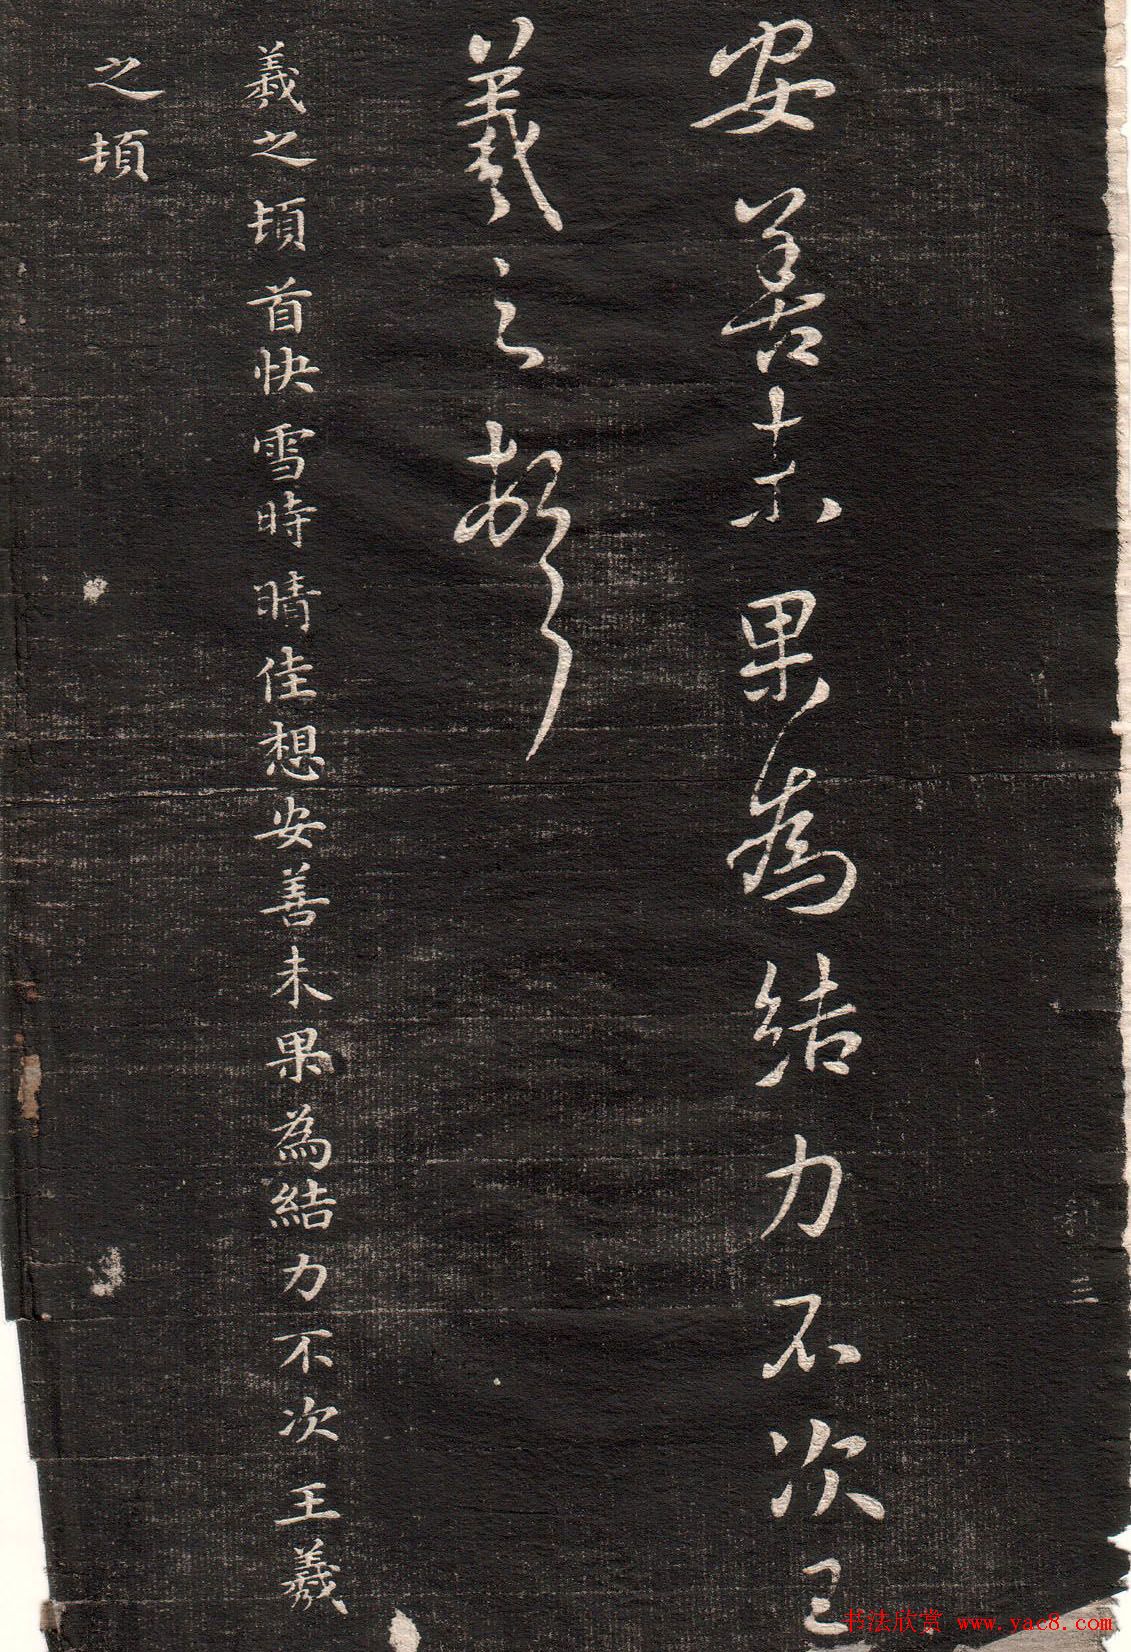 安善未果為結力不次王
羲之頓
羲之頓首快雪時晴佳想安善未果為結力不次王羲
之頓
书法欣赏 www.yac8.com